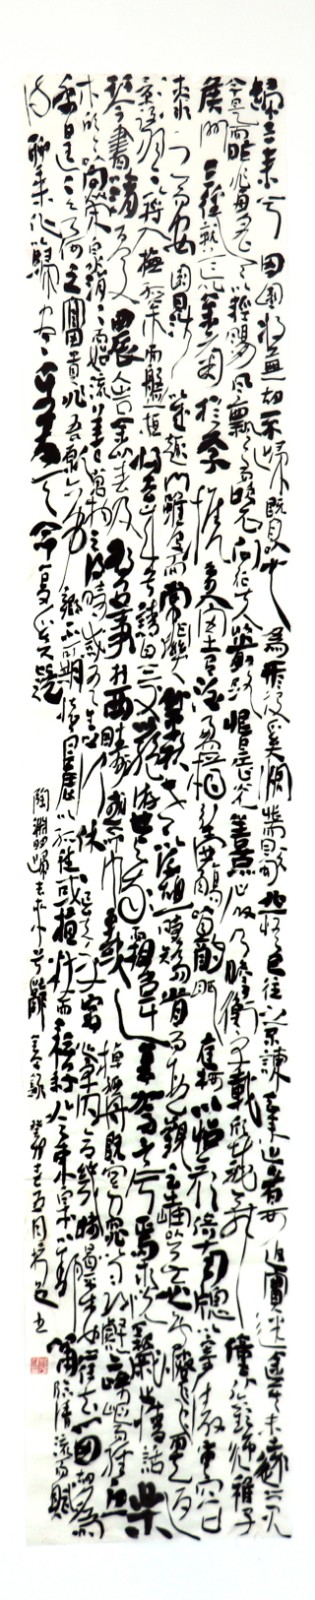 歸去來兮田園將蕪胡不歸既自以心為形役奚惆悵而獨悲悟已往之不諫知來者之可追實迷途其未遠覺
今是而昨非舟遙遙以輕颺風飄飄而吹衣問征夫以前路恨晨光之熹微乃瞻衡宇載欣載奔僮僕歡迎稚子
候門三徑就荒松菊猶存攜幼入室有酒盈樽引壺觴以自酌眄庭柯以怡顏倚南窗以寄傲審容膝
之易安園日涉以成趣門雖設而常關策扶老以流憩時矯首而遐觀雲無心以出岫鳥倦飛而知還
景翳翳以將入撫孤松而盤桓歸去來兮請息交以絕游世與我而相違復駕言兮焉求悅親戚之情話樂
琴書以消憂農人告余以春及將有事於西疇或命巾車或棹孤舟既窈窕以尋壑亦崎嶇而經丘
木欣欣以向榮泉涓涓而始流善萬物之得時感吾生之行休已矣乎寓形宇內復幾時曷不委心任去留胡為
乎遑遑欲何之富貴非吾願帝鄉不可期懷良辰以孤往或植杖而耘耔登東皋以舒嘯臨清流而賦
詩聊乘化以歸盡樂夫天命復奚疑
陶淵明歸去來兮辭